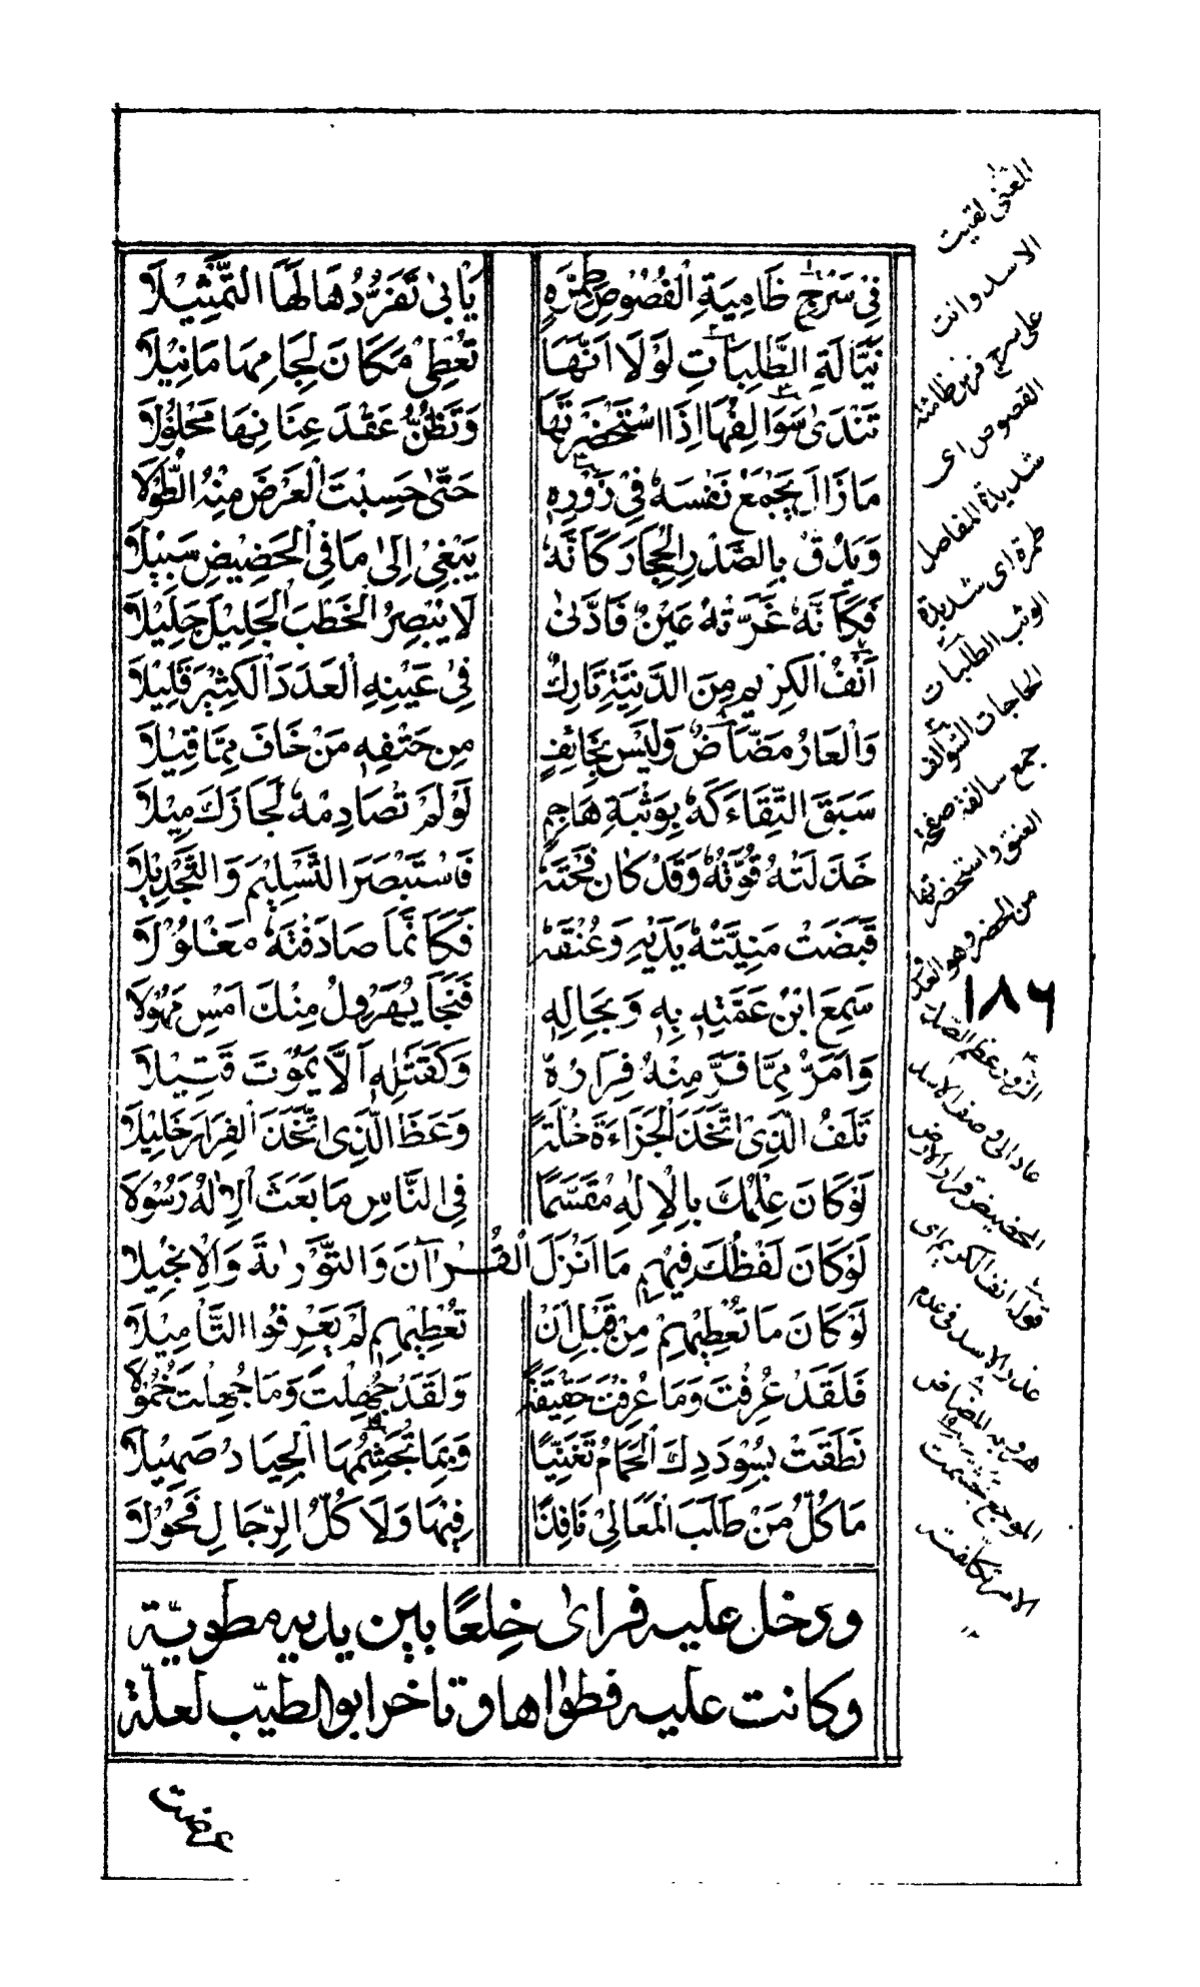 فِي سَرْجِ ظَامِيَةِ الْفُصُوْصِ طِمِرَّةٍ يَأْبىٰ تَفَرُّدُهَا لَهَا التَّمْثِيْلَا
نَيَّالَةِ الطَّلِبَاتِ لَوْلَا اَنَّهَا تُعْطِيْ مَكَانَ لِجَامِهَا مَا نِيْلَا
تَنْدَىٰ سَوَالِفُهَا اِذَا اسْتَحْضَرْتَهَا وَتَظُنُّ عَقْدَ عِنَانِهَا مَحْلُوْلَا
مَا زَالَ يَجْمَعُ نَفْسَهٗ فِيْ زَوْرِهٖ حَتّىٰ حَسِبْتَ الْعَرْضَ مِنْهُ الطُّوْلَا
وَيَدُقُّ بِالصَّدْرِ الْحِجَارَ كَاَنَّهٗ يَبْغِيْ اِلىٰ مَا فِي الْحَضِيْضِ سَبِيْلَا
فَكَاَنَّهٗ غَرَّتْهُ عَيْنٌ فَادَّنىٰ لَا يُبْصِرُ الْخَطْبَ الْجَلِيْلَ جَلِيْلَا
اَنَفُ الْكَرِيْمِ مِنَ الدَّنِيَّةِ تَارِكٌ فِيْ عَيْنِهِ الْعَدَدَ الْكَثِيْرَ قَلِيْلَا
وَالْعَارُ مَضَّاضٌ وَلَيْسَ بِخَائِفٍ مِنْ حَتْفِهٖ مَنْ خَافَ مِمَّا قِيْلَا
سَبَقَ الْتِقَاءَكَهٗ بِوَثْبَةِ هَاجِمٍ لَوْ لَمْ تُصَادِمْهٗ لَجَازَكَ مِيْلَا
خَذَلَتْهُ قُوَّتُهٗ وَقَدْ كَافَحْتَهٗ فَاسْتَبْصَرَ التَّسْلِيْمَ وَالتَّجْدِيْلَا
قَبَضَتْ مَنِيَّتُهٗ يَدَيْهِ وَعُنْقَهٗ فَكَاَنَّمَا صَادَفْتَهٗ مَغْلُوْلَا
سَمِعَ ابْنُ عَمَّتِهٖ بِهٖ وَبِحَالِهٖ فَنَجَا يُهَرْوِلُ مِنْكَ اَمْسِ مَهُوْلَا
وَاَمَرُّ مِمَّا فَرَّ مِنْهُ فِرَارُهٗ وَكَقَتْلِهٖ اَلَّا يَمُوْتَ قَتِيْلَا
تَلَفُ الَّذِي اتَّخَذَ الْجَرَاءَةَ خُلَّةً وَعَظَ الَّذِي اتَّخَذَ الْفِرَارَ خَلِيْلَا
لَوْ كَانَ عِلْمُكَ بِالْاِلٰهِ مُقَسَّمًا فِي النَّاسِ مَا بَعَثَ الْاِلٰهُ رَسُوْلَا
لَوْ كَانَ لَفْظُكَ فِيْهِمِ مَا اَنْزَلَ الْقُرْآنَ وَالتَّوْرٰىةَ وَالْاِنْجِيْلَا
لَوْ كَانَ مَا تُعْطِيْهِمِ مِنْ قَبْلِ اَنْ تُعْطِيْهِمِ لَمْ يَعْرِفُوا التَّامِيْلَا
فَلَقَدْ عُرِفْتَ وَمَا عُرِفْتَ حَقِيْقَةً وَلَقَدْ جُهِلْتَ وَمَا جُهِلْتَ خُمُوْلَا
نَطَقَتْ بِسُوْدَدِكَ الْحَمَامُ تَغَنِّيًا وَبِمَا تُجَشِّمُهَا الْجِيَادُ صَهِيْلَا
مَا كُلُّ مَنْ طَلَبَ الْمَعَالِيْ نَافِذًا فِيْهَا وَلَا كُلُّ الرِّجَالِ فُحُوْلَا
ودخل عليه فراىٰ خِلعًا بين يديه مطويّة
وكانت عليه فطواها وتاخر ابو الطيّب لعلّة
المعنى لقيت
الاسد وانت
على سرج فرس ظامئة
الفصوص اى
شديدة المفاصل
طمرة اى شديدة
الوثب الطلبات
الحاجات السوالف
جمع سالفة صفحة
العنق واستحضرتها
من الحضر وهو العدو
١٨٦
الزور عظم الصدر
عاد الى وصف الاسد
الحضيض قرار الارض
قوله انف الكريم اى
عذر الاسد فى عدم
هروبه المضاض
الموجع جشمت
الامر تكلفت
١٢